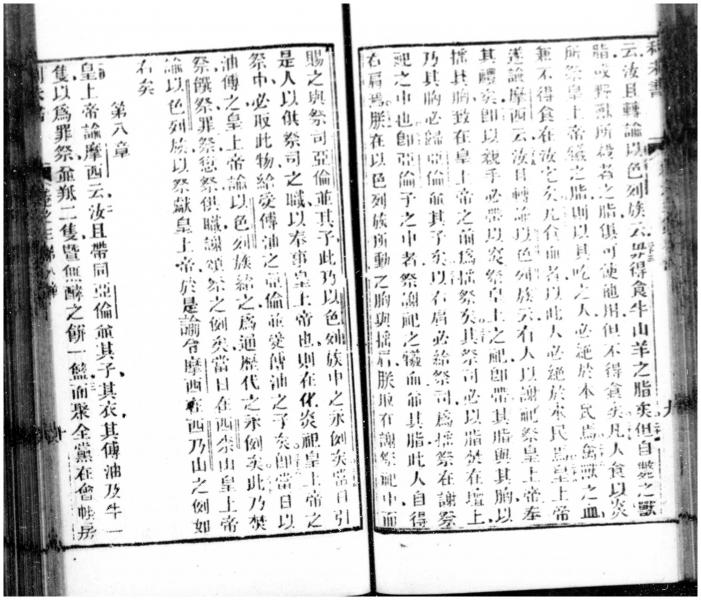 云汝且轉諭以色列族云毋得食牛山羊之脂矣但自斃之獸
脂或野獸所殺者之脂俱可使用但不得食矣凡人食以炎
所祭皇上帝犧之脂則以其吃之人必絕於本民焉禽獸之血
兼不得食在汝宅矣凡食血者以此人必絕於本民焉皇上帝
遂諭摩西云汝且轉諭以色列族云有人以謝祀祭皇上帝奉
其禮矣卽以親手必帶以炎祭皇上帝之祀卽帶其脂與其胸以
搖其胸致在皇上帝之前爲搖祭矣其祭司必以脂焚在壇上
乃其胸必歸亞倫並其子矣以右肩必給祭司爲搖祭在謝祭
祀之中也卽亞倫子之中者祭謝祀之犧血並其脂此人自得
右肩焉朕在以色列族所動之胸與搖肩朕取在謝祭祀中而
賜之與祭司亞倫並其子此乃以色列族中之永例矣當日引
是人以供祭司之職以奉事皇上帝也則在化炎祀皇上帝之
祭中必取此物給受傅油之亞倫並受傅油之子矣卽當日以
油傅之皇上帝諭以色列族給之爲通歷代之永例矣此乃焚
祭饌祭罪祭愆祭供職謝頌祭之例矣當日在西柰山皇上帝
諭以色列族以祭獻皇上帝於是諭令摩西在西乃山之例如
右矣
第八章
皇上帝諭摩西云汝且帶同亞倫並其子其衣其傅油及牛一
隻以爲罪祭並羝二隻曁無酵之餅一籃而聚全黨在會帳房